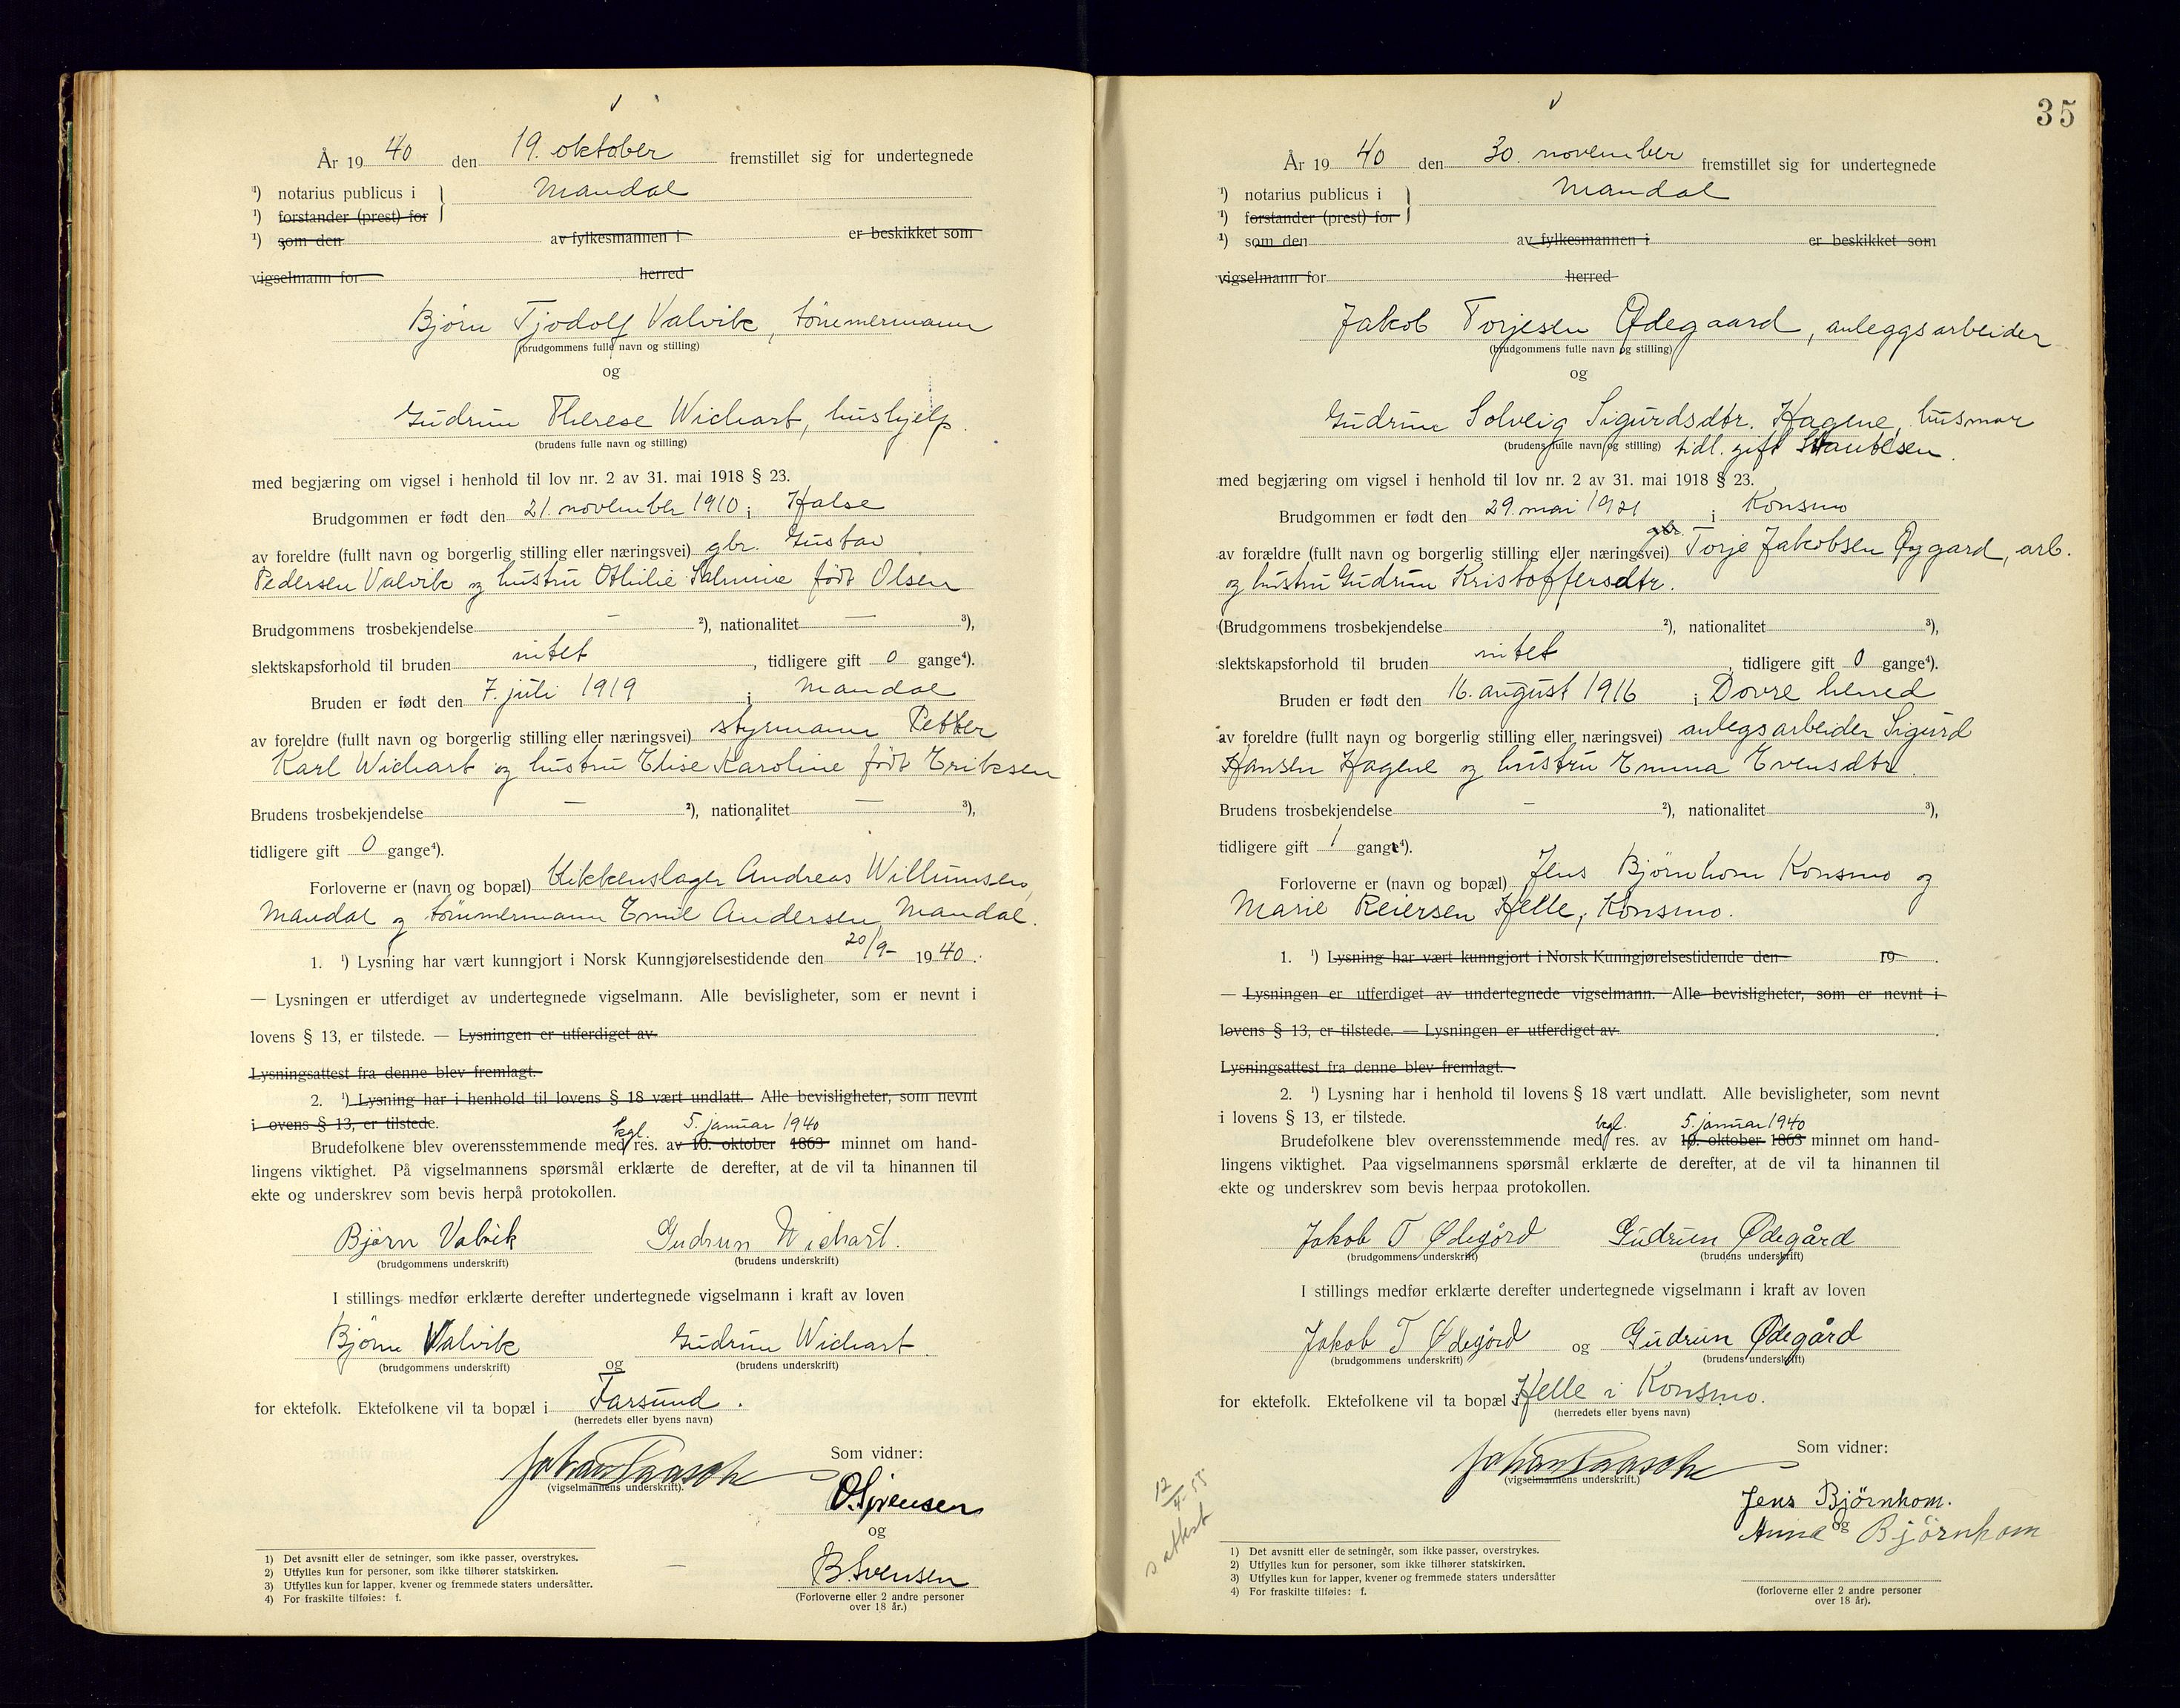 År 19 40 den 19. oktober fremstillet sig for undertegnede
¹) notarius publicus i Mandal
¹) forstander (prest) for
¹) som den av fylkesmannen i er beskikket som
vigselmann for herred
Bjørn Tjodolf Valvik, tömmermann
(brudgommens fulle navn og stilling)
og
Gudrun Therese Wichart, hushjelp.
(brudens fulle navn og stilling)
med begjæring om vigsel i henhold til lov nr. 2 av 31. mai 1918 § 23.
Brudgommen er født den 21. november 1910 i Halse
av foreldre (fullt navn og borgerlig stilling eller næringsvei) gbr. Gustav
Pedersen Valvik og hustru Othilie Salmine født Olsen
Brudgommens trosbekjendelse — ²), nationalitet — ³),
slektskapsforhold til bruden intet, tidligere gift 0 gange⁴).
Bruden er født den 7. juli 1919 i Mandal
av foreldre (fullt navn og borgerlig stilling eller næringsvei) styrmann Petter
Karl Wichart og hustru Elise Karoline født Eriksen
Brudens trosbekjendelse — ²), nationalitet — ³),
tidligere gift 0 gange⁴).
Forloverne er (navn og bopæl) blikkenslager Andreas Willumsen,
Mandal og tömmermann Emil Andersen, Mandal.
1. ¹) Lysning har vært kunngjort i Norsk Kunngjørelsestidende den 20/9- 1940.
— Lysningen er utferdiget av undertegnede vigselmann. Alle bevisligheter, som er nevnt i
lovens § 13, er tilstede. — Lysningen er utferdiget av
Lysningsattest fra denne blev fremlagt.
2. ¹) Lysning har i henhold til lovens § 18 vært undlatt. Alle bevisligheter, som nevnt
i ovens § 13, er tilstede.
kgl. 5. januar 1940
Brudefolkene blev overensstemmende med res. av 10. oktober 1863 minnet om hand-
lingens viktighet. På vigselmannens spørsmål erklærte de derefter, at de vil ta hinannen til
ekte og underskrev som bevis herpå protokollen.
Bjørn Valvik Gudrun Wichart.
(brudgommens underskrift) (brudens underskrift)
I stillings medfør erklærte derefter undertegnede vigselmann i kraft av loven
Bjørn Valvik og Gudrun Wichart
(brudgommens underskrift) (brudens underskrift)
for ektefolk. Ektefolkene vil ta bopæl i Farsund.
(herredets eller byens navn)
Som vidner:
Johan Paasche
(vigselmannens underskrift).
O. Sørensen
og
B. Svensen
(Forloverne eller 2 andre personer
over 18 år.)
1) Det avsnitt eller de setninger, som ikke passer, overstrykes.
2) Utfylles kun for personer, som ikke tilhører statskirken.
3) Utfylles kun for lapper, kvener og fremmede staters undersåtter.
4) For fraskilte tilføies: f.
35
År 19 40 den 30. november fremstillet sig for undertegnede
¹) notarius publicus i Mandal
¹) forstander (prest) for
¹) som den av fylkesmannen i er beskikket som
vigselmann for herred
Jakob Torjesen Ødegaard, anleggsarbeider
(brudgommens fulle navn og stilling)
og
Gudrun Solveig Sigurdsdtr. Hagene, husmor
(brudens fulle navn og stilling) tidl. gift
med begjæring om vigsel i henhold til lov nr. 2 av 31. mai 1918 § 23.
Brudgommen er født den 29. mai 1921 i Konsmo
av forældre (fullt navn og borgerlig stilling eller næringsvei) Torje Jakobsen Øygard, arb.
og hustru Gudrun Kristoffersdtr.
(Brudgommens trosbekjendelse ²), nationalitet ³),
slektskapsforhold til bruden intet, tidligere gift 0 gange⁴).
Bruden er født den 16. august 1916 i Dovre herred
av foreldre (fullt navn og borgerlig stilling eller næringsvei) anlegsarbeider Sigurd
Hansen Hagene og hustru Emma Evensdtr.
Brudens trosbekjendelse — ²), nationalitet ³),
tidligere gift 1 gang⁴).
Forloverne er (navn og bopæl) Jens Bjørnhom Konsmo og
Marie Reiersen Helle, Konsmo.
1. ¹) Lysning har vært kunngjort i Norsk Kunngjørelsestidende den 19 .
— Lysningen er utferdiget av undertegnede vigselmann. Alle bevisligheter, som er nevnt i
lovens § 13, er tilstede. — Lysningen er utferdiget av .
Lysningsattest fra denne blev fremlagt.
2. ¹) Lysning har i henhold til lovens § 18 vært undlatt. Alle bevisligheter, som nevnt
i lovens § 13, er tilstede.
kgl. 5. januar 1940
Brudefolkene blev overensstemmende med res. av 10. oktober 1863 minnet om hand-
lingens viktighet. Paa vigselmannens spørsmål erklærte de derefter, at de vil ta hinannen til
ekte og underskrev som bevis herpaa protokollen.
Jakob T Ødegård Gudrun Ødegård
(brudgommens underskrift) (brudens underskrift)
I stillings medfør erklærte derefter undertegnede vigselmann i kraft av loven
Jakob T Ødegård og Gudrun Ødegård
(brudgommens underskrift) (brudens underskrift)
for ektefolk. Ektefolkene vil ta bopæl i Helle i Konsmo.
(herredets eller byens navn)
Som vidner:
Johan Paasche
(vigselmannens underskrift.)
Jens Bjørnhom.
og
Anna Bjørnhom
(forloverne eller 2 andre personer
over 18 år).
12/4-55
attest
1) Det avsnitt eller de setninger, som ikke passer, overstrykes.
2) Utfylles kun for personer, som ikke tilhører statskirken.
3) Utfylles kun for lapper, kvener og fremmede staters undersåtter
4) For fraskilte tilføies: f.